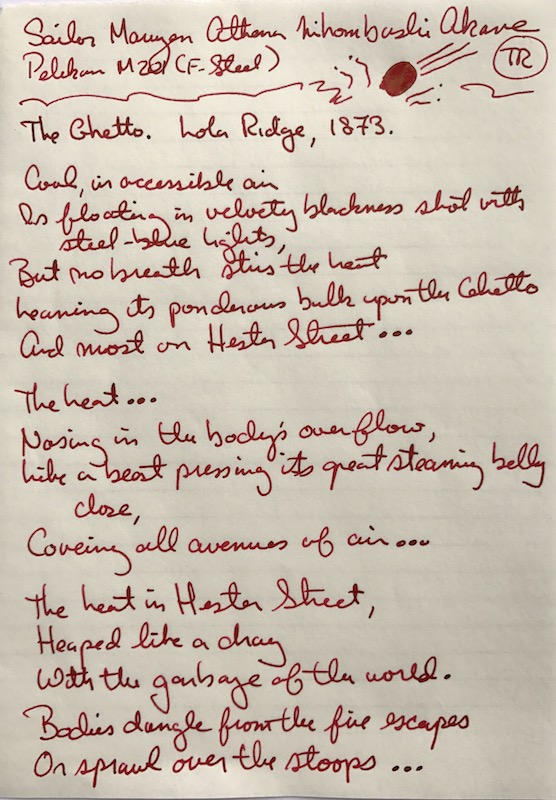 Sailor Maruzen Athena Nihombashi Akane
Pelikan M201 (F-Steel)
TR
The Ghetto. Lola Ridge, 1873.
Cool, inaccessible air
Is floating in velvety blackness shot with
steel-blue lights,
But no breath stirs the heat
Leaning its ponderous bulk upon the Ghetto
And most on Hester Street...
The heat...
Nosing in the body's overflow,
Like a beast pressing its great steaming belly
close,
Coveing all avenues of air...
The heat in Hester Street,
Heaped like a dray
With the garbage of the world.
Bodies dangle from the fire escapes
Or sprawl over the stoops...